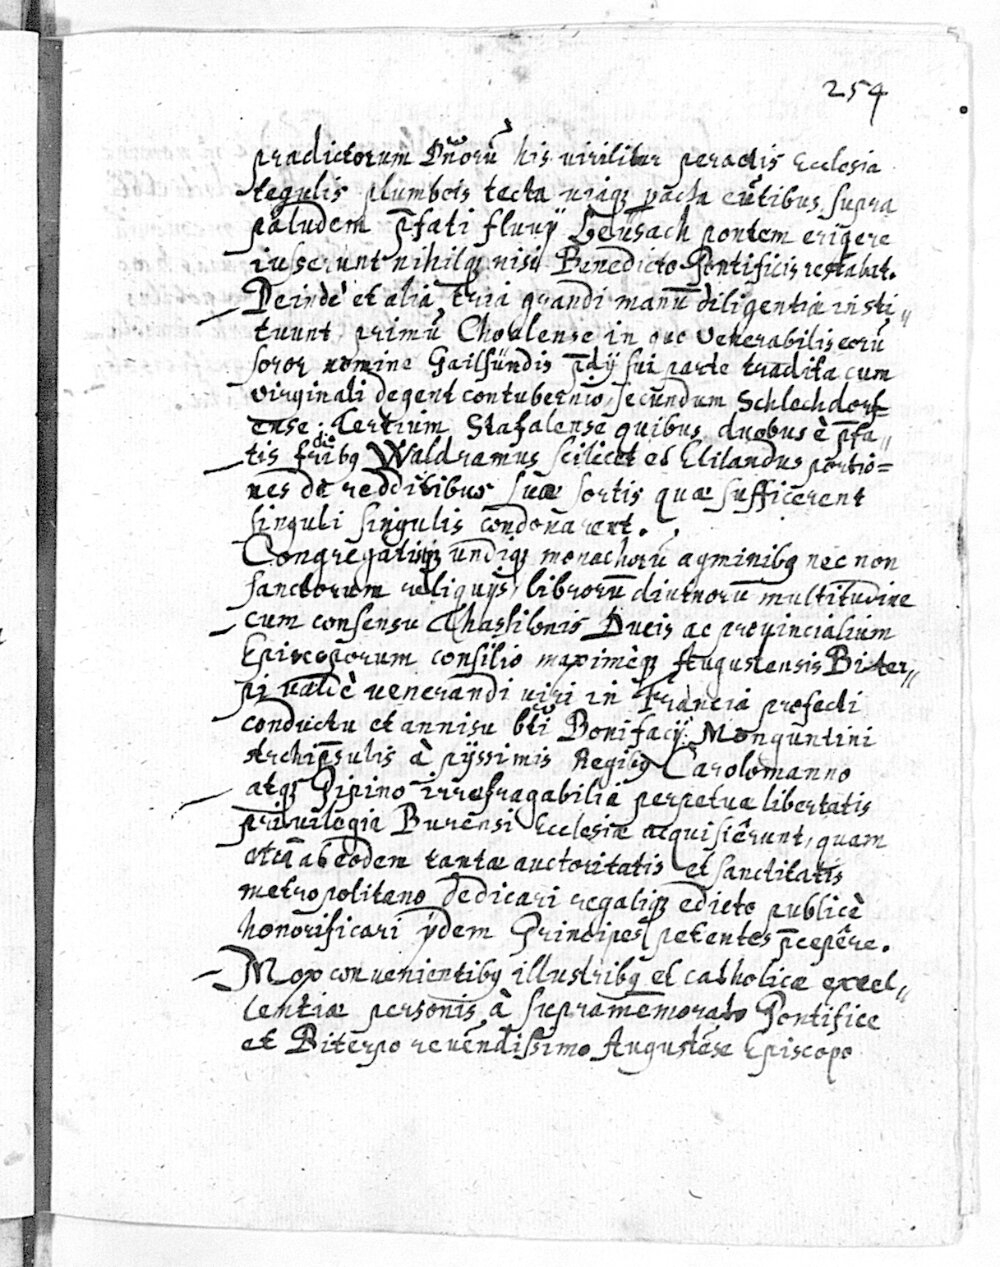 254
prædictorum Dn̄orū his viriliter peractis Ecclesia
tegulis plumbeis tecta viaq; pacta eūtibus supra
paludem p̄fati fluvij Leüsach pontem erigere
iuserunt nihilq; nisi Benedictio Pontificis restabat.
Deindè et alia tria grandi manū diligentia insti„
tuunt primū Chovlense in quo venerabilis eorū
soror nomine Gailsündis p̄dij sui parte tradita cum
virginali degent contubernio, secundum Schlechdorf=
ense. Tertium Stafalense quibus duobus è p̄fa„
tis fr̄ibq Waldramus scilicet et Elilandus portio=
nes de redditibus suæ sortis quæ sufficerent
singuli singulis condonarent.
Congregatisq; undiq; monachorū agminibq nec non
sanctorum reliquijs, librorū diuinorū multitudine
cum consensu Thassilonis Ducis ac provincialium
Episcoporum consilio maximèq; Augustensis Biter„
pi valdè venerandi viri in Francia profecti
conductu et annisu bt̄i Bonifacij Monguntini
Archip̄sulis à pijssimis Regibq Carolomanno
atq; Pipino irrefragabilia perpetuæ libertatis
privilegia Burensi Ecclesiæ acquisiêrunt, quam
etiā ab eodem tantæ auctoritatis et sanctitatis
metropolitano dedicari regaliq; edicto publicè
honorificari ijdem Principes petentes p̄cepêre.
Mox convenientibq illustribq et catholicæ excel„
lentiæ personis à supramemorato Pontifice
et Biterpo revēndissimo Augustēse Episcopo